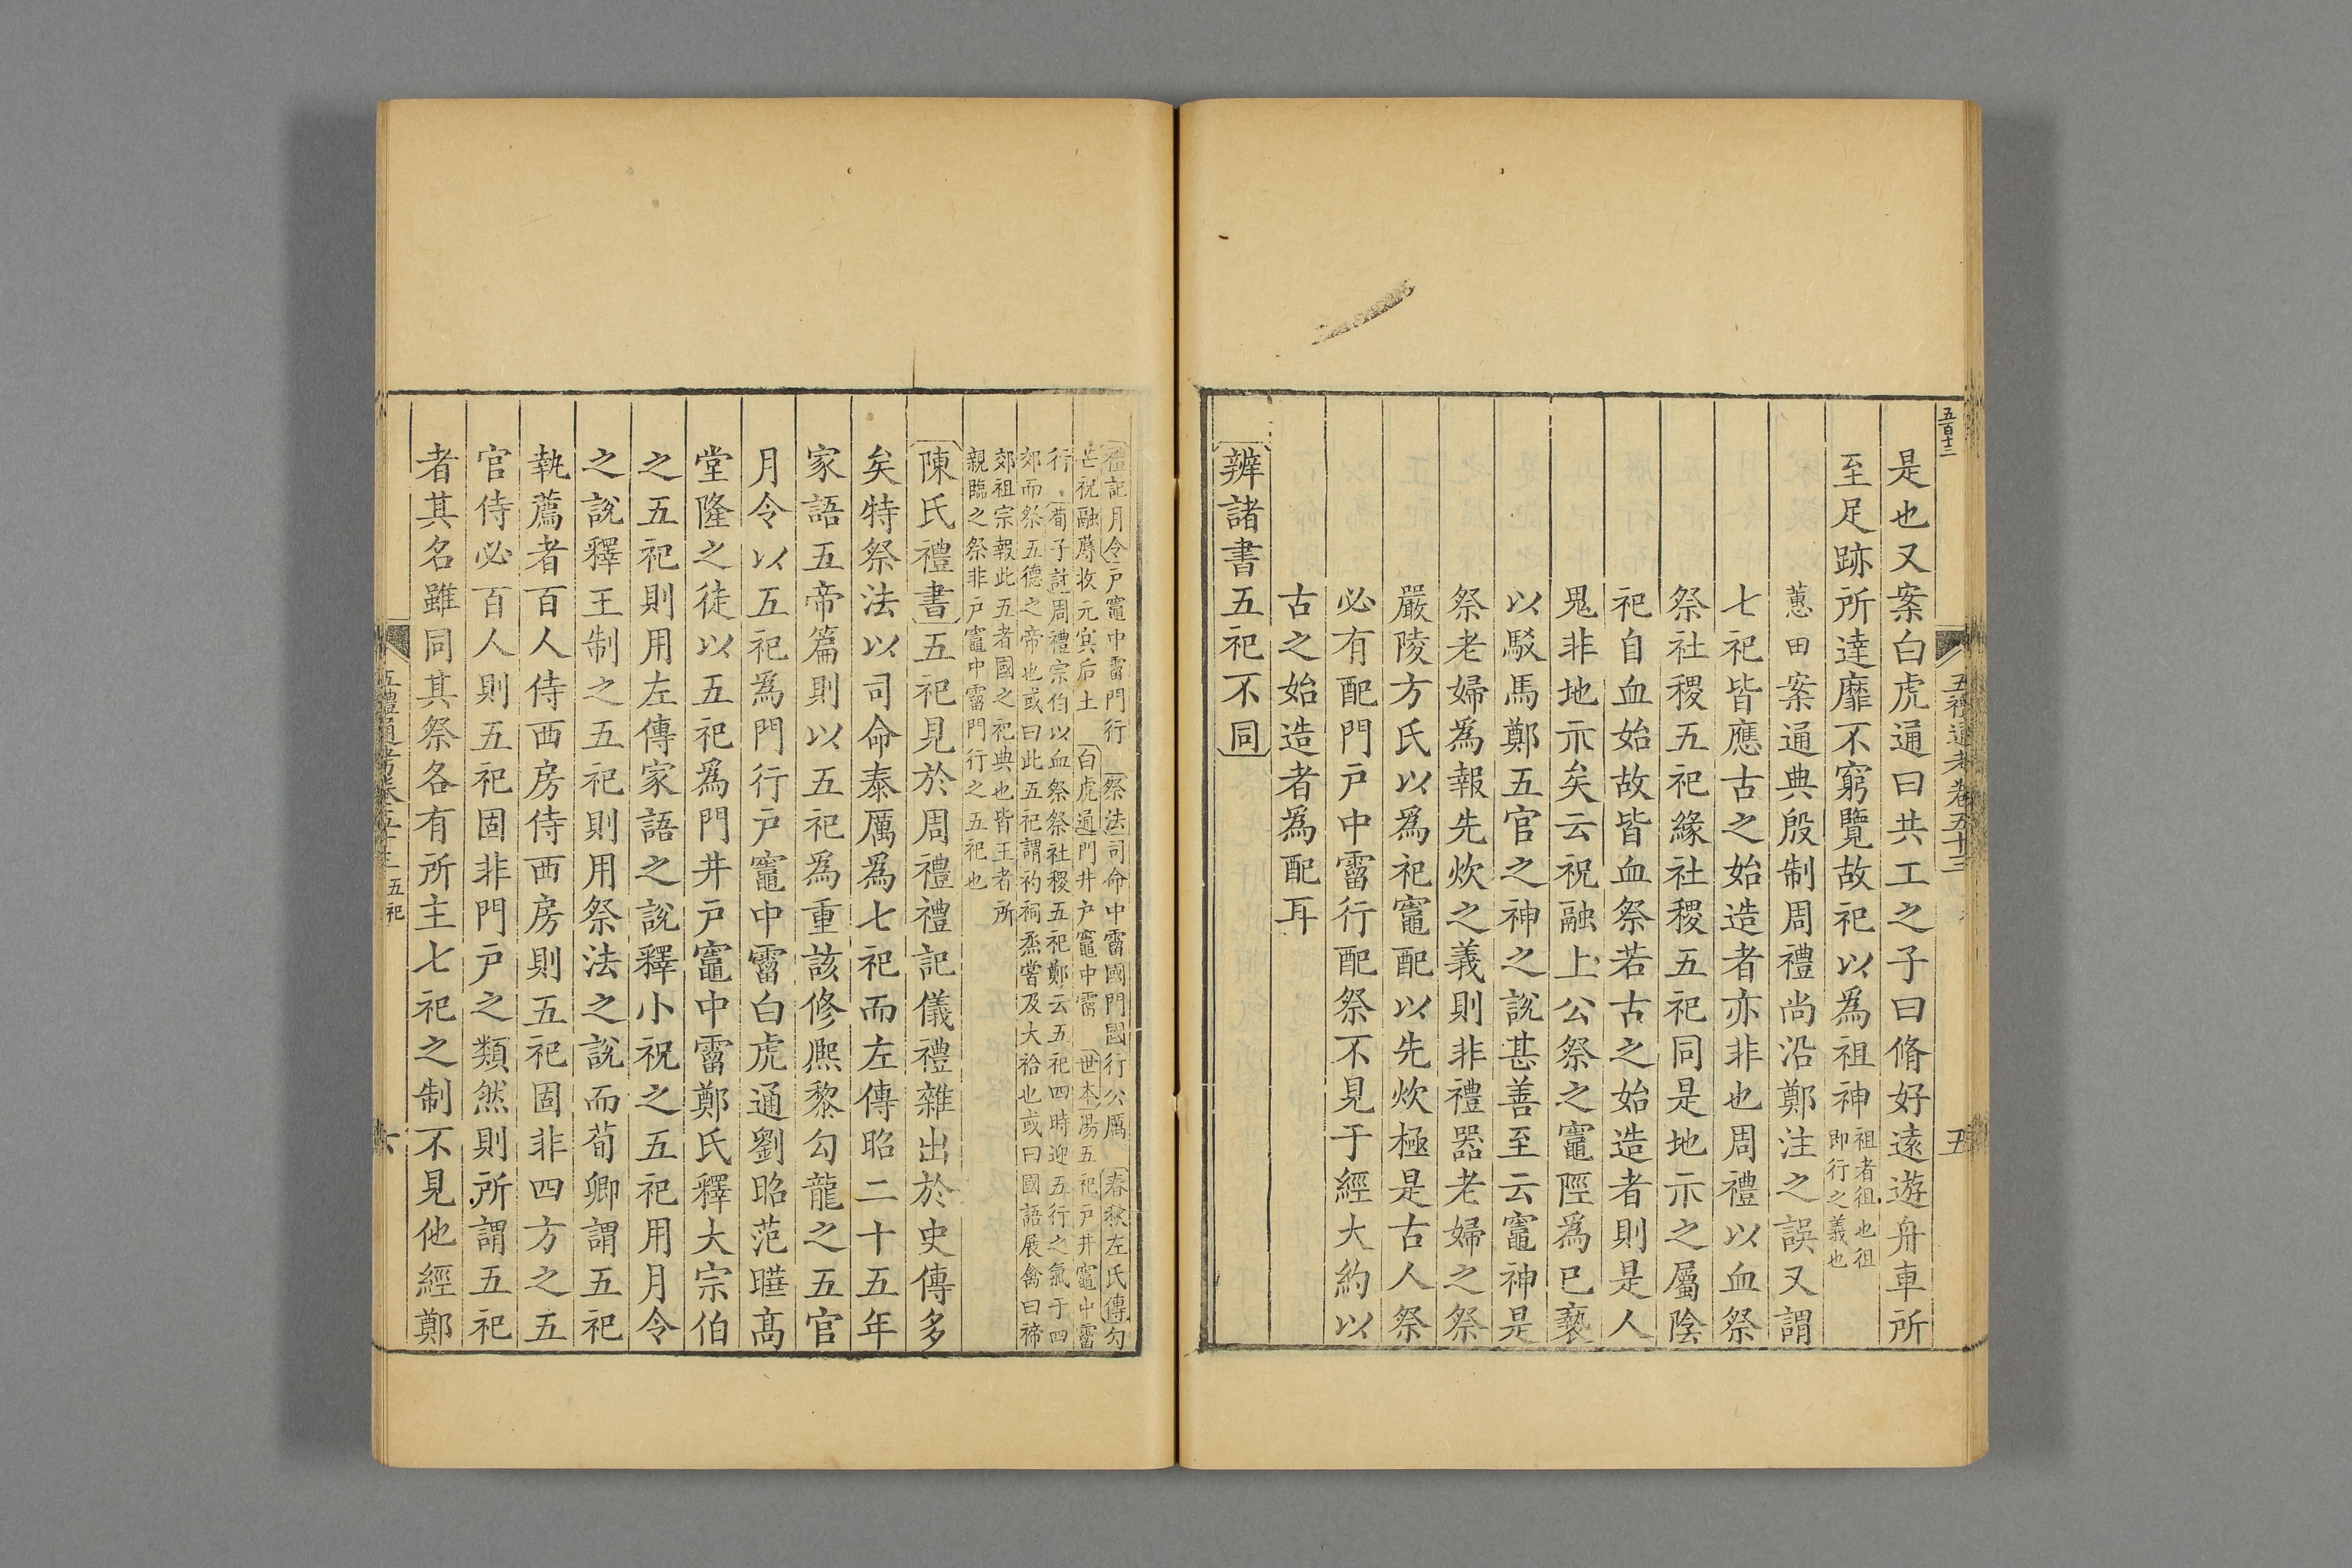 五百十三
五禮通考卷五十三
五
是也又案白虎通曰共工之子曰脩好遠遊舟車所
至足跡所達靡不窮覽故祀以爲祖神祖者徂也徂
即行之義也
蕙田案通典殷制周禮尚沿鄭注之誤又謂
七祀皆應古之始造者亦非也周禮以血祭
祭社稷五祀緣社稷五祀同是地示之屬陰
祀自血始故皆血祭若古之始造者則是人
鬼非地示矣云祝融上公祭之竈陘爲已褻
以駁馬鄭五官之神之說甚善至云竈神是
祭老婦爲報先炊之義則非禮器老婦之祭
嚴陵方氏以爲祀竈配以先炊極是古人祭
必有配門戶中霤行配祭不見于經大約以
古之始造者爲配耳
辨諸書五祀不同
禮記月令戶竈中霤門行　祭法司命中霤國門國行公厲　春秋左氏傳勾
芒祝融蓐收元冥后土　白虎通門井戶竈中霤　世本湯五祀戶井竈中霤
行　荀子註周禮宗伯以血祭祭社稷五祀鄭云五祀四時迎五行之氣于四
郊而祭五德之帝也或曰此五祀謂礿祠烝嘗及大祫也或曰國語展禽曰禘
郊祖宗報此五者國之祀典也皆王者所
親臨之祭非戶竈中霤門行之五祀也
陳氏禮書五祀見於周禮禮記儀禮雜出於史傳多
矣特祭法以司命泰厲爲七祀而左傳昭二十五年
家語五帝篇則以五祀爲重該修熙黎勾龍之五官
月令以五祀爲門行戶竈中霤白虎通劉昭范曄髙
堂隆之徒以五祀爲門井戶竈中霤鄭氏釋大宗伯
之五祀則用左傳家語之說釋小祝之五祀用月令
之說釋王制之五祀則用祭法之說而荀卿謂五祀
執薦者百人侍西房侍西房則五祀固非四方之五
官侍必百人則五祀固非門戶之類然則所謂五祀
者其名雖同其祭各有所主七祀之制不見他經鄭
五禮通考卷五十三　五祀
六